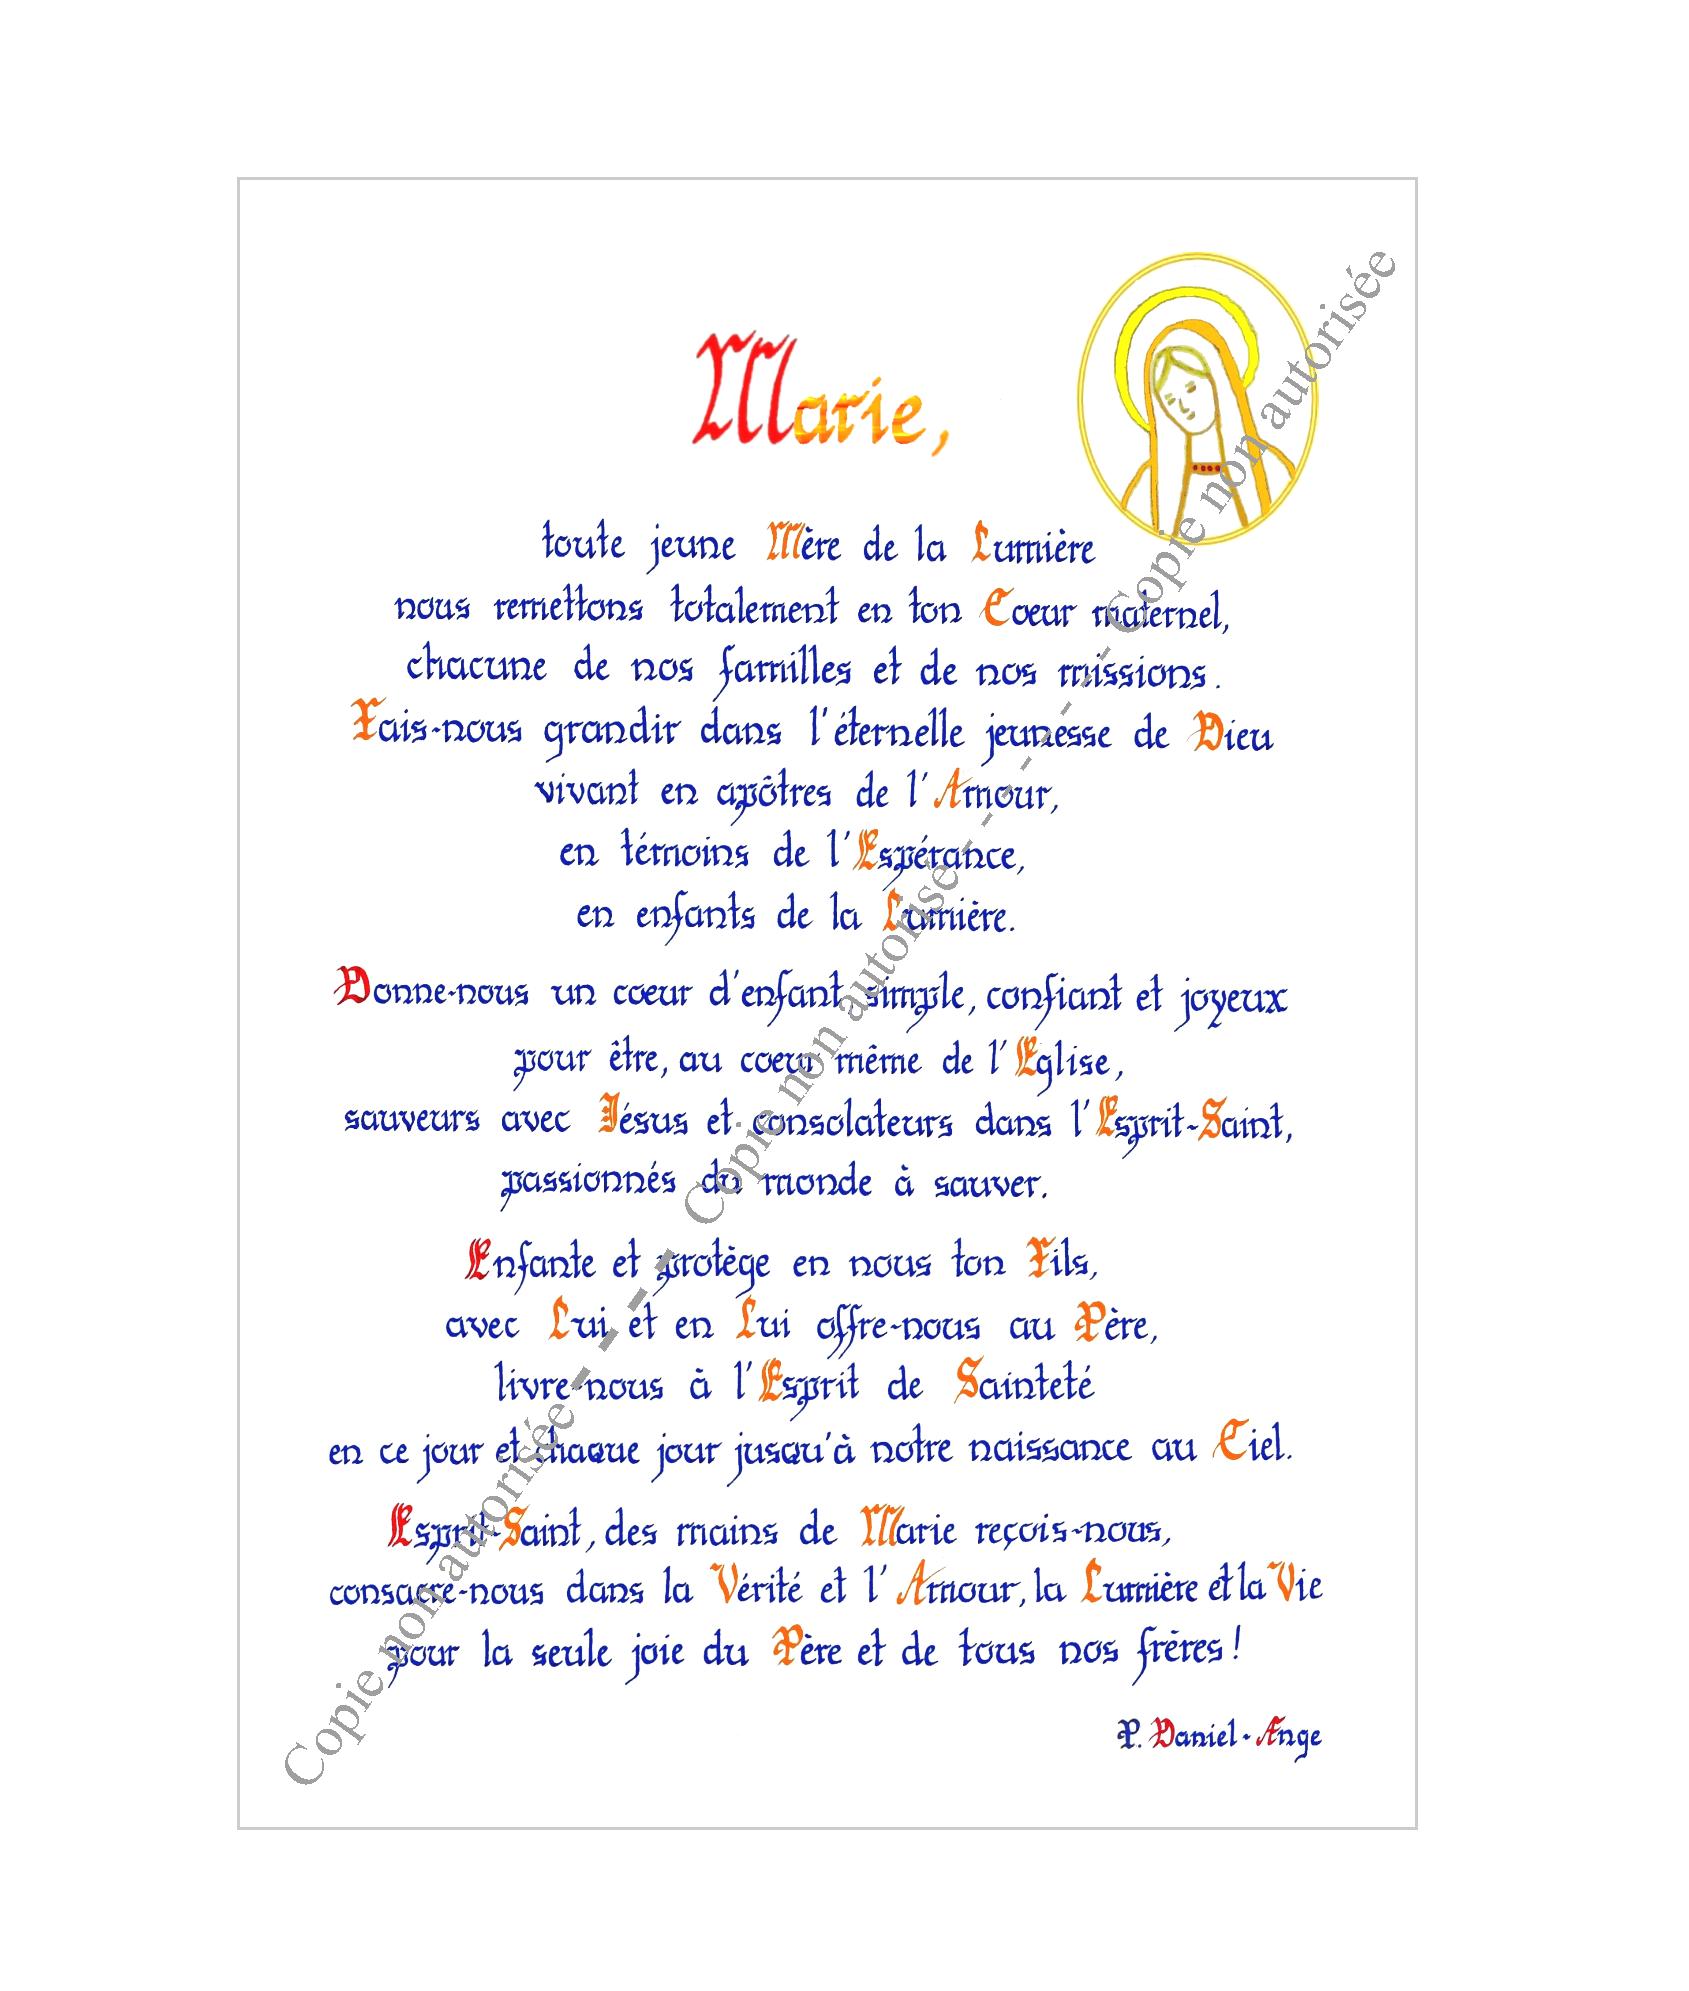 Marie,
toute jeune Mère de la Lumière
nous remettons totalement en ton Coeur maternel,
chacune de nos familles et de nos missions.
Fais-nous grandir dans l'éternelle jeunesse de Dieu
vivant en apôtres de l'Amour,
en témoins de l'Espérance,
en enfants de la Lumière.
Donne-nous un coeur d'enfant simple, confiant et joyeux
pour être, au coeur même de l'Eglise,
sauveurs avec Jésus et consolateurs dans l'Esprit-Saint,
passionnés du monde à sauver.
Enfante et protège en nous ton Fils,
avec Lui et en Lui offre-nous au Père,
livre-nous à l'Esprit de Sainteté
en ce jour et chaque jour jusqu'à notre naissance au Ciel.
Esprit-Saint, des mains de Marie reçois-nous,
consacre-nous dans la Vérité et l'Amour, la Lumière et la Vie
pour la seule joie du Père et de tous nos frères !
P. Daniel-Ange
Copie non autorisée - - - - - Copie non autorisée - - - - - - - Copie non autorisée